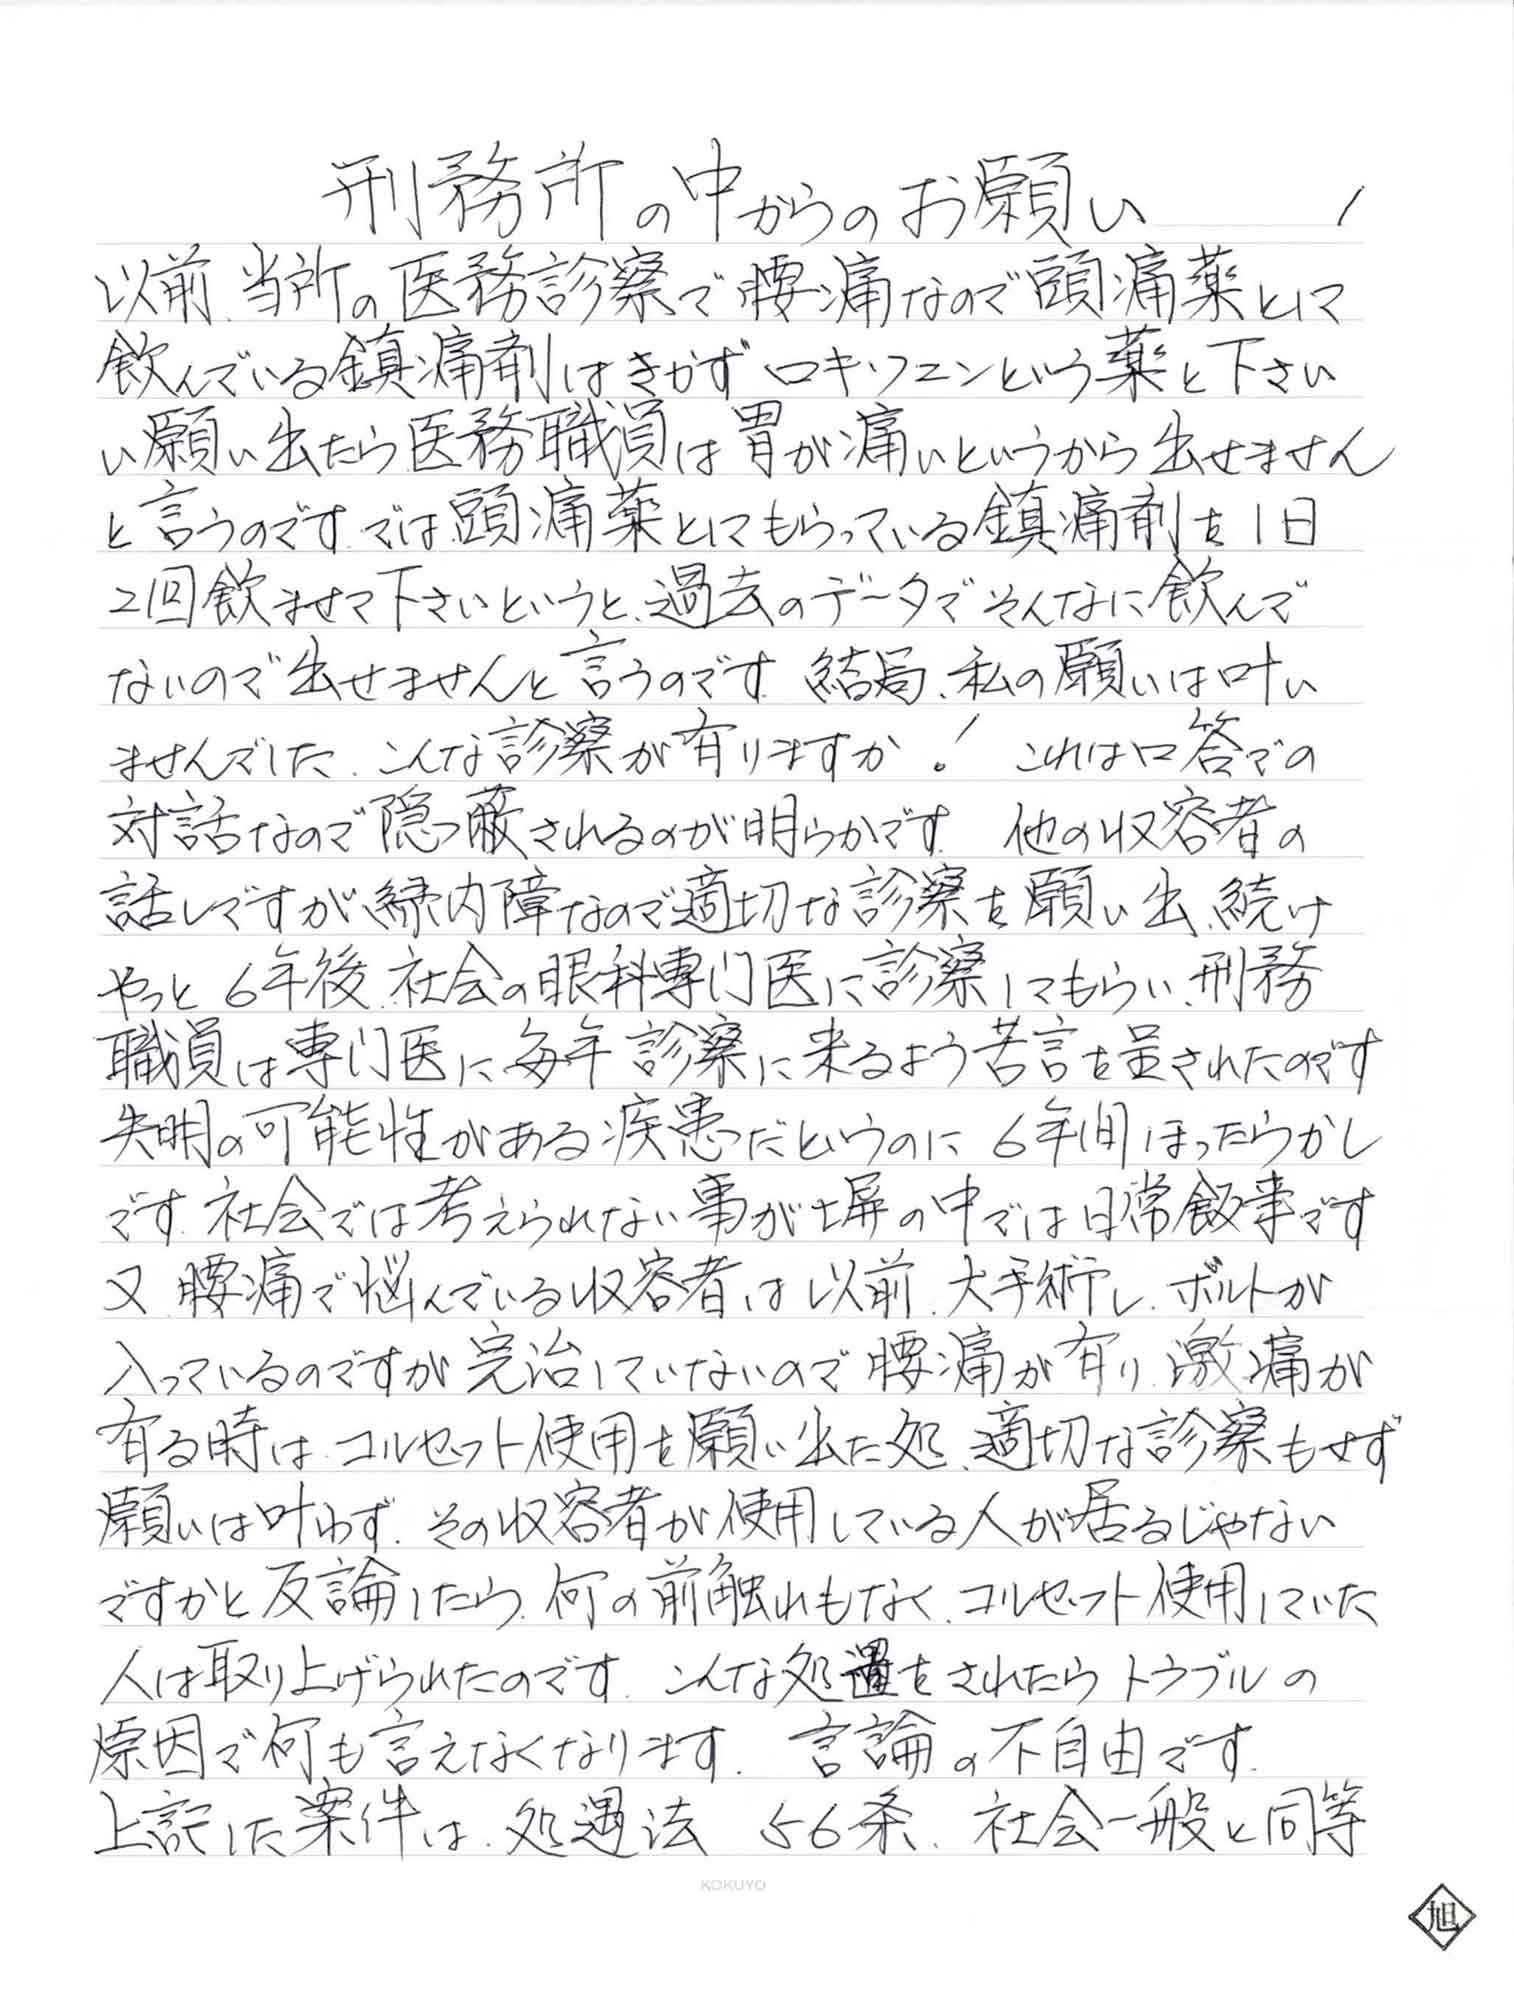 刑務所の中からのお願い 1
以前、当所の医務診察で腰痛なので頭痛薬として
飲んでいる鎮痛剤はきかずロキソフェンという薬と下さい
い願い出たら医務職員は胃が痛いというから出せません
と言うのです。では頭痛薬としてもらっている鎮痛剤を1日
2回飲ませて下さいというと、過去のデータでそんなに飲んで
ないので出せませんと言うのです。結局、私の願いは叶い
ませんでした。こんな診察が有りますか! これは口答での
対話なので隠っ蔽されるのが明らかです。 他の収容者の
話しですが緑内障なので適切な診察を願い出、続け
やっと6年後、社会の眼科専門医に診察してもらい、刑務
職員は専門医に毎年診察に来るよう苦言を呈されたのです
失明の可能性がある疾患っだというのに6年間ほったらかし
です。社会では考えられない事が塀の中では日常飯事です
又、腰痛で悩んでいる収容者は以前、大手術し、ボルトが
入っているのですが完治していないので腰痛が有り、激痛が
有る時は、コルセット使用を願い出た処、適切な診察もせず
願いは叶わず、その収容者が使用している人が居るじゃない
ですかと反論したら、何の前触れもなく、コルセット使用していた
人は取り上げられたのです。こんな処置をされたらトラブルの
原因で何も言えなくなります。 言論の不自由です。
上記した案件は、処遇法 56条、社会一般と同等
KOKUYO
旭